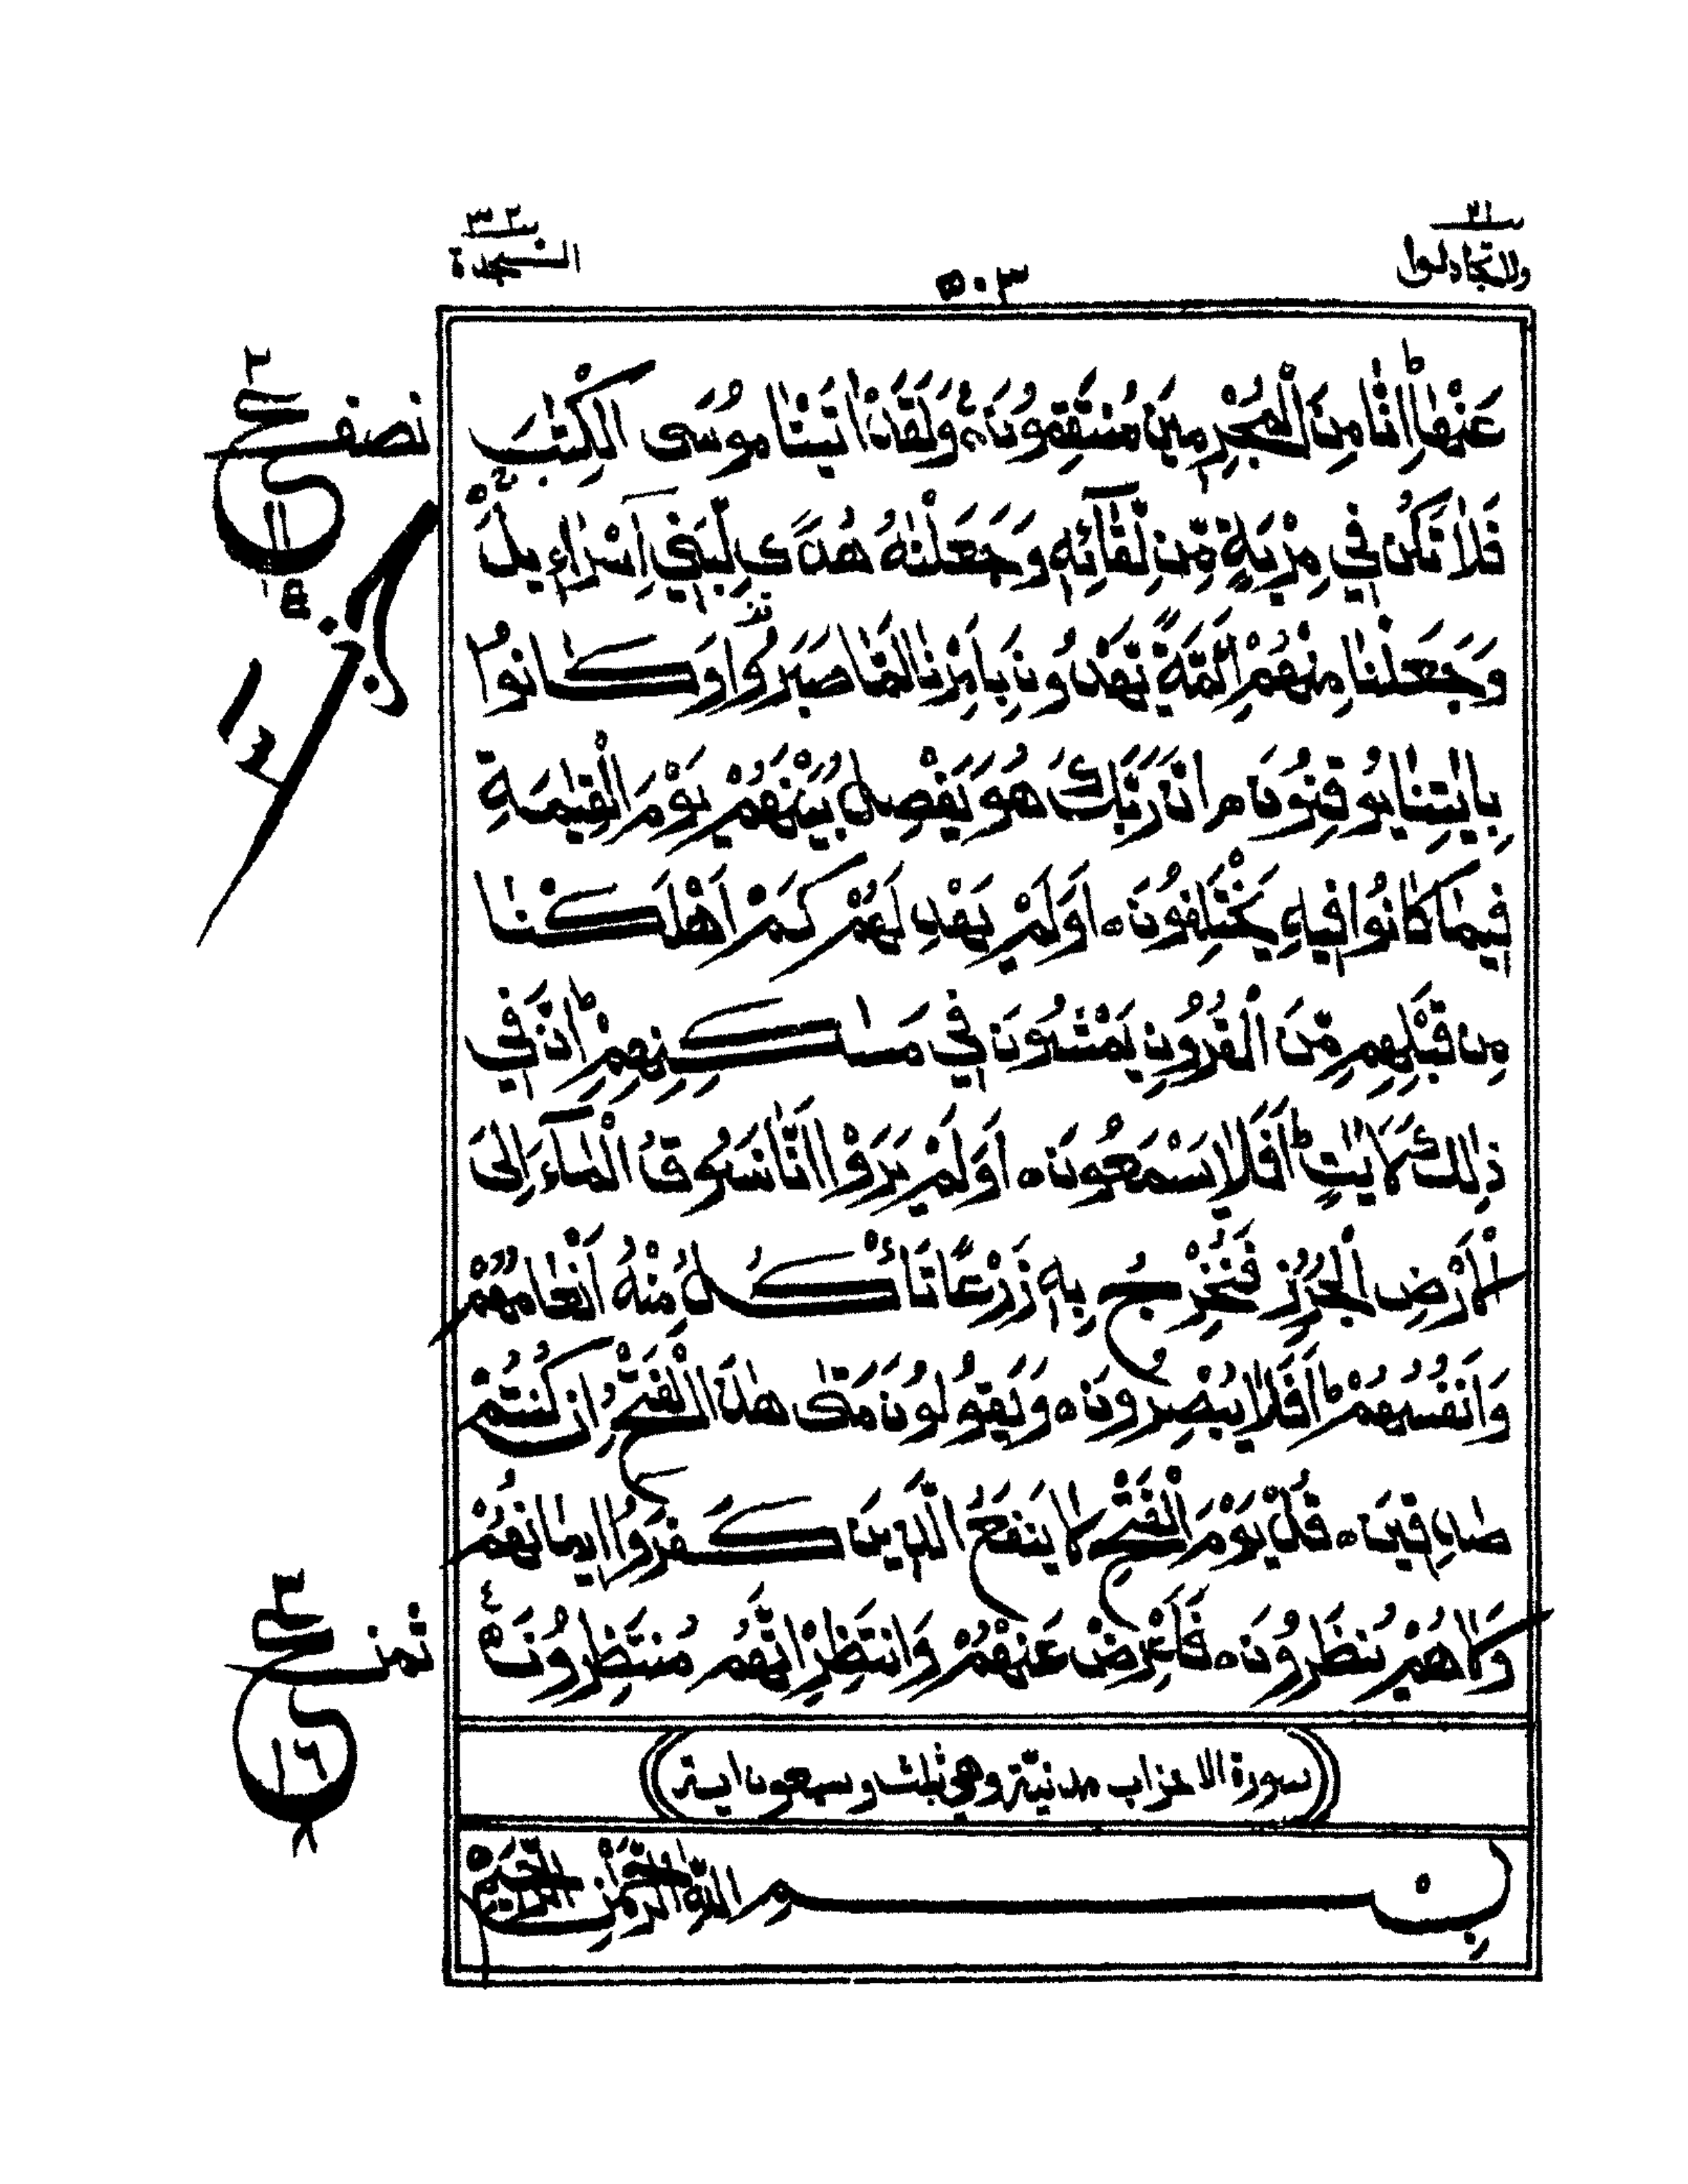 ٢١
ولا تجادلوا
٥٠٣
٣٢
السجدة
عَنْهَا ؕ اِنَّا مِنَ الْمُجْرِمِيْنَ مُنْتَقِمُوْنَ ۧ وَلَقَدْ اٰتَيْنَا مُوْسَى الْكِتٰبَ
فَلَا تَكُنْ فِيْ مِرْيَةٍ مِّنْ لِّقَآئِهٖ وَجَعَلْنٰهُ هُدًى لِّبَنِيْٓ اِسْرَآءِيْلَ ۚ
وَجَعَلْنَا مِنْهُمْ اَئِمَّةً يَّهْدُوْنَ بِاَمْرِنَا لَمَّا صَبَرُوْا وَكَانُوْا
بِاٰيٰتِنَا يُوْقِنُوْنَ ه اِنَّ رَبَّكَ هُوَ يَفْصِلُ بَيْنَهُمْ يَوْمَ الْقِيٰمَةِ
فِيْمَا كَانُوْا فِيْهِ يَخْتَلِفُوْنَ ه اَوَلَمْ يَهْدِ لَهُمْ كَمْ اَهْلَكْنَا
مِنْ قَبْلِهِمْ مِّنَ الْقُرُوْنِ يَمْشُوْنَ فِيْ مَسٰكِنِهِمْ ؕ اِنَّ فِيْ
ذٰلِكَ لَاٰيٰتٍ ؕ اَفَلَا يَسْمَعُوْنَ ه اَوَلَمْ يَرَوْا اَنَّا نَسُوْقُ الْمَآءَ اِلَى
الْاَرْضِ الْجُرُزِ فَنُخْرِجُ بِهٖ زَرْعًا تَاْكُلُ مِنْهُ اَنْعَامُهُمْ
وَاَنْفُسُهُمْ ؕ اَفَلَا يُبْصِرُوْنَ ه وَيَقُوْلُوْنَ مَتٰى هٰذَا الْفَتْحُ اِنْ كُنْتُمْ
صٰدِقِيْنَ ه قُلْ يَوْمَ الْفَتْحِ لَا يَنْفَعُ الَّذِيْنَ كَفَرُوْا اِيْمَانُهُمْ
وَلَا هُمْ يُنْظَرُوْنَ ه فَاَعْرِضْ عَنْهُمْ وَانْتَظِرْ اِنَّهُمْ مُّنْتَظِرُوْنَ ۧ
سورة الاحزاب مدنيّة وهي ثلث وسبعون اية
بِسْمِ اللّٰهِ الرَّحْمٰنِ الرَّحِيْمِ
نصف
ع
ثمن
ع
١٦